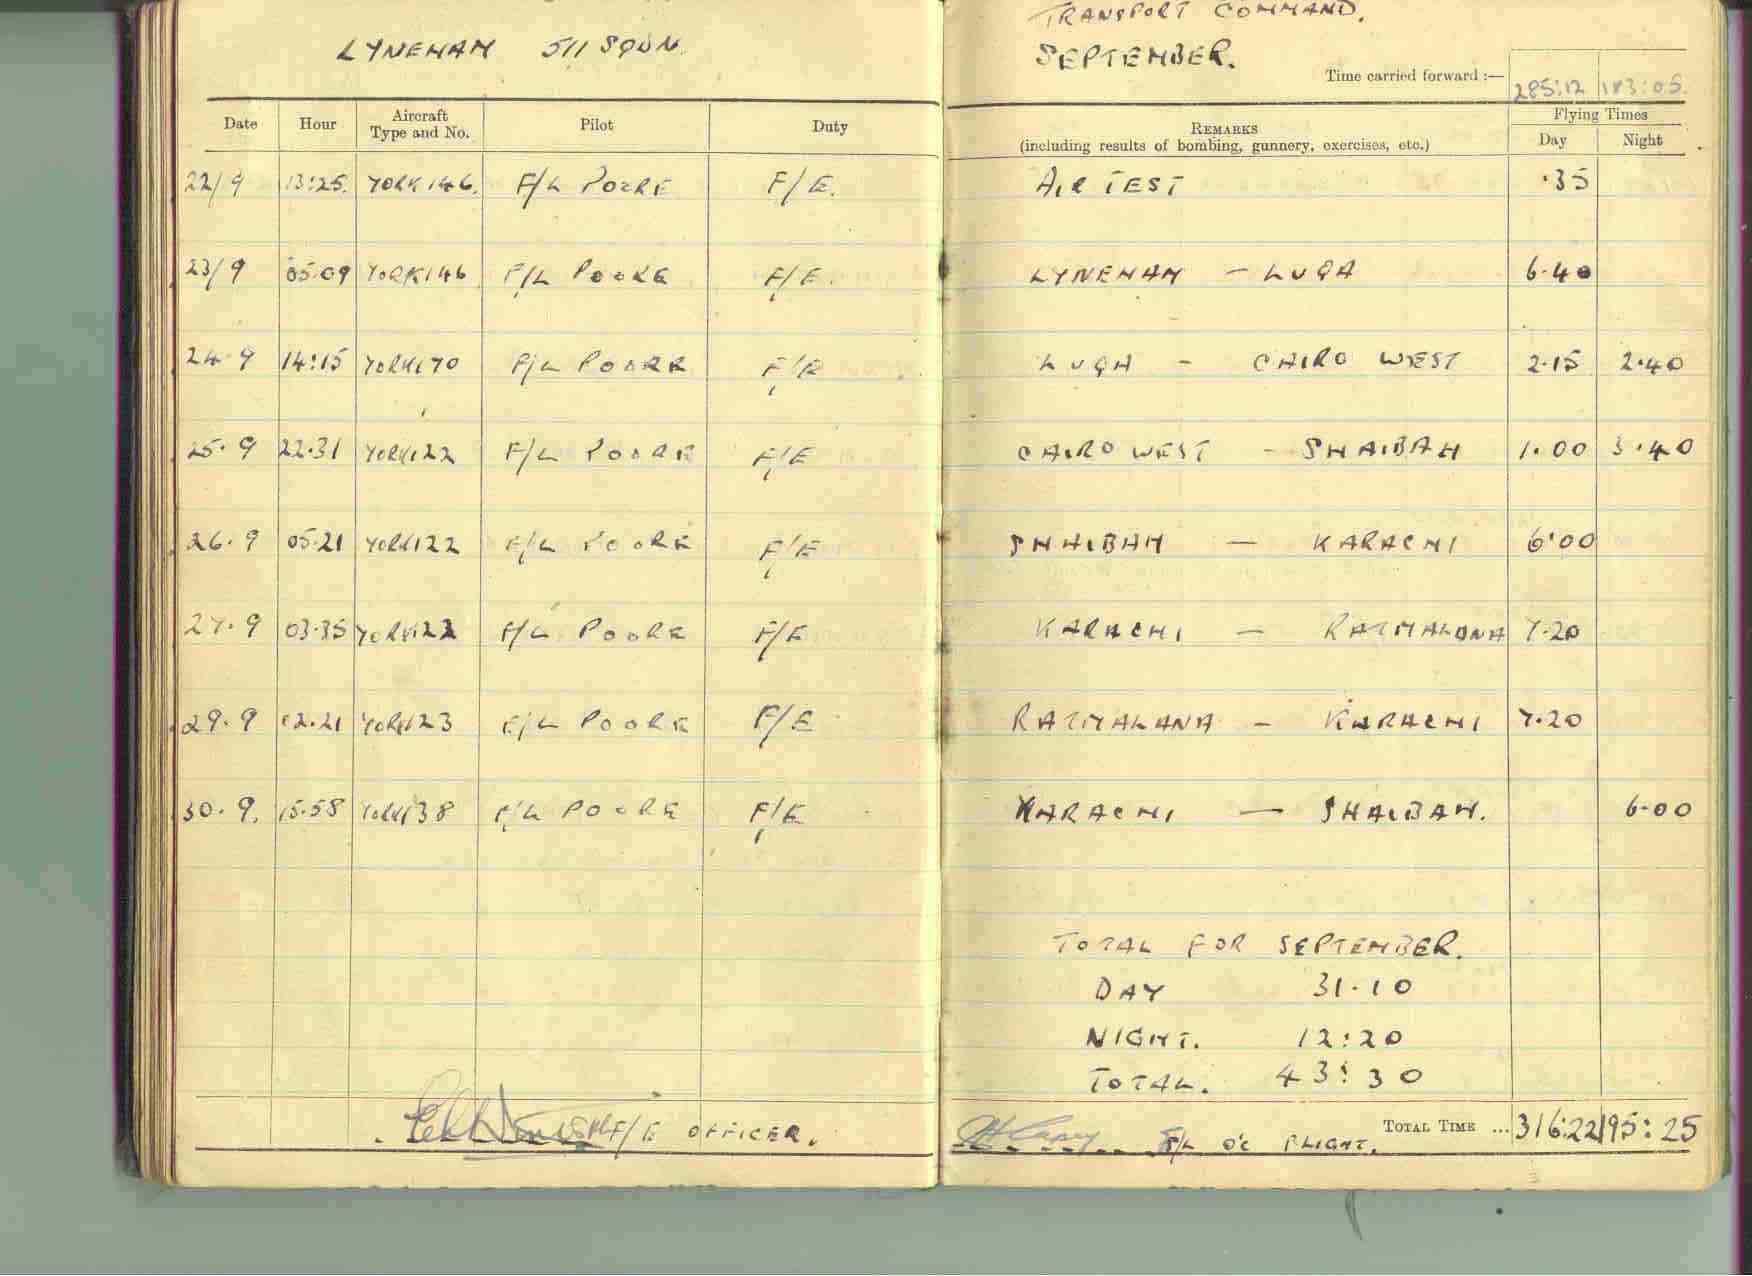 LYNEHAM 511 SQDN.
TRANSPORT COMMAND.
SEPTEMBER.
Time carried forward :— 285:12 183:05.
Date Hour Aircraft Type and No. Pilot Duty REMARKS (including results of bombing, gunnery, exercises, etc.) Flying Times Day Night
22/9 13:25. YORK 146. F/L POORE F/E. AIR TEST .35
23/9 05.09 YORK 146 F/L POORE F/E. LYNEHAM - LUQA 6.40
24.9 14:15 YORK 170 F/L POORE F/E LUQA - CAIRO WEST 2.15 2.40
25.9 22.31 YORK 122 F/L POORE F/E CAIRO WEST - SHAIBAH 1.00 3.40
26.9 05.21 YORK 122 F/L POORE F/E SHAIBAH - KARACHI 6.00
27.9 03.35 YORK 122 F/L POORE F/E KARACHI - RATMALANA 7.20
29.9 02.21 YORK 123 F/L POORE F/E RATMALANA - KARACHI 7.20
30.9. 15.58 YORK 138 F/L POORE F/E KARACHI - SHAIBAH. 6.00
TOTAL FOR SEPTEMBER.
DAY 31.10
NIGHT. 12:20
TOTAL. 43:30
F/E OFFICER.
F/L O/C FLIGHT. TOTAL TIME ... 316:22 195:25